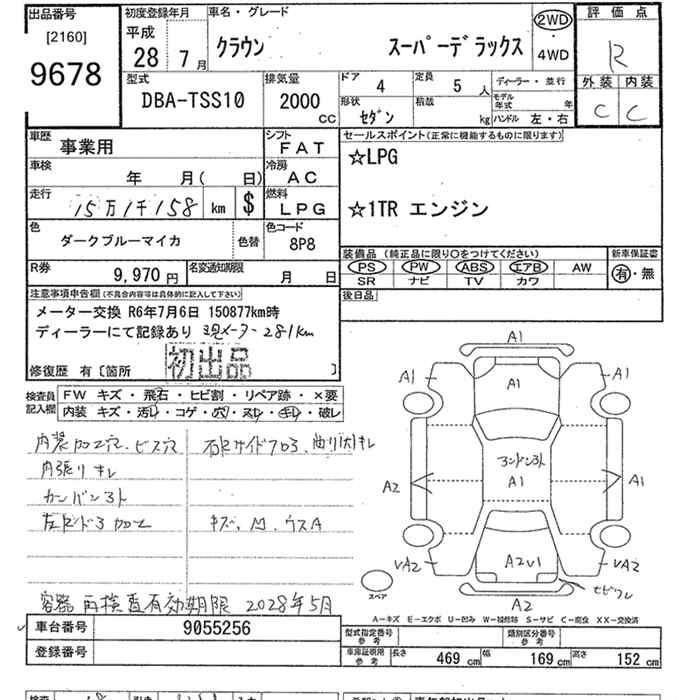 出品番号 初度登録年月 車名・グレード 評価点
[2160] 平成
9678 28 年 7 月 クラウン スーパーデラックス 2WD 4WD R
型式 排気量 ドア 4 定員 5 人 ディーラー・並行 外装 内装
DBA-TSS10 2000 cc 形状 セダン 積載 kg モデル年式 年 ハンドル 左・右 C C
車歴 事業用 シフト FAT セールスポイント(正常に機能するものに限ります)
車検 年 月( 日) 冷房 AC ☆LPG
走行 15万1千158 km $ 燃料 LPG ☆1TR エンジン
色 ダークブルーマイカ 色替 色コード 8P8
装備品 (純正品に限り○をつけてください) 新車保証書
R券 9,970 円 名変通知期限 月 日 PS PW ABS エアB AW 有・無
SR ナビ TV カワ
注意事項申告欄(不具合内容等は具体的に記入して下さい) 後日品
メーター交換 R6年7月6日 150877km時
ディーラーにて記録あり 現メーター281km
初出品
修復歴 有〔箇所 〕
検査員記入欄 FW キズ・飛石・ヒビ割・リペア跡・×要
内装 キズ・汚れ・コゲ・穴・スレ・キレ・破レ
内装加工穴、ビス穴
内張りキレ
カンバン3ト
キズ、凹、ウスA
容器再検査有効期限 2028年5月
A1
A1 A1 A1
ヨンドン3ト
A1
A2 A1
VA2 A2V1 VA2
A2
スペア
A-キズ E-エクボ U-凹み W-補修跡 S-サビ C-腐食 XX-交換済
車台番号 9055256
型式指定番号 参考 類別区分番号 参考
登録番号
車庫証明用 参考 長さ 469 cm 幅 169 cm 高さ 152 cm